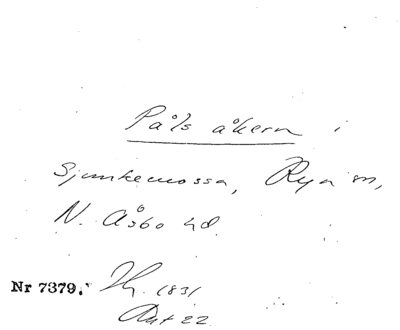 Påls åkern i
Sjunkemossa, Rya sn,
N. Åsbo hd.
Nr 7379. Hg. 1831
Akt 22